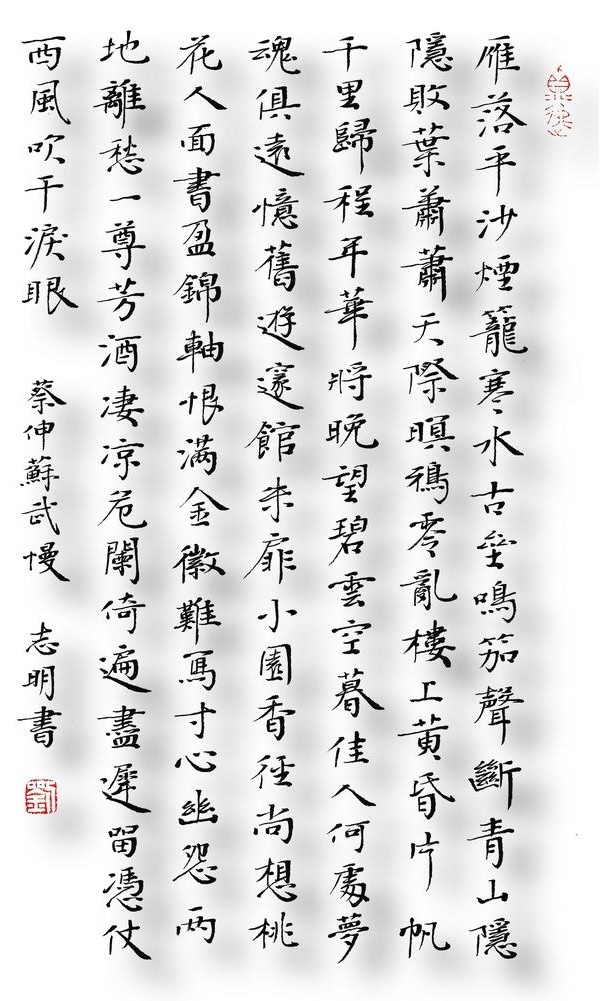 雁落平沙煙籠寒水古壘鳴笳聲斷青山隱
隱敗葉蕭蕭天際暝鴉零亂樓上黃昏片帆
千里歸程年華將晚望碧雲空暮佳人何處夢
魂俱遠憶舊遊邃館朱扉小園香徑尚想桃
花人面書盈錦軸恨滿金徽難寫寸心幽怨兩
地離愁一尊芳酒淒涼危闌倚遍盡遲留憑仗
西風吹干淚眼
蔡伸蘇武慢
志明書
劉